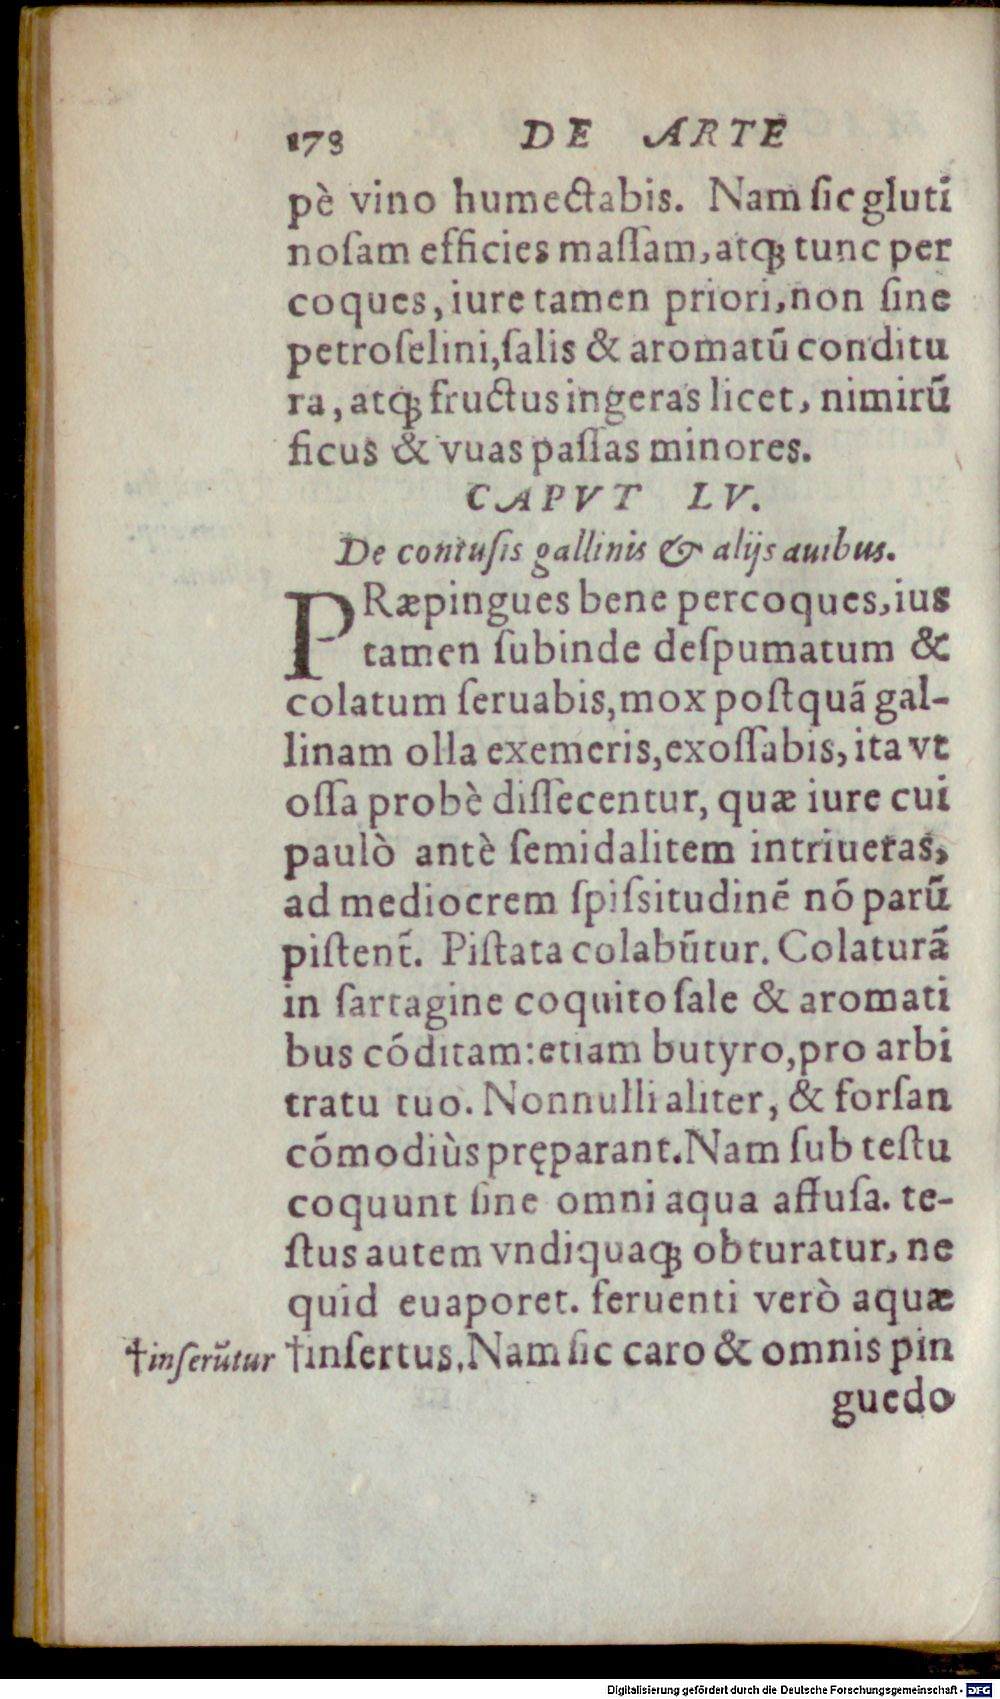 178 DE ARTE
pè vino humectabis. Nam ſic gluti
noſam efficies maſſam, atq́ꝫ tunc per
coques, iure tamen priori, non ſine
petroſelini, ſalis & aromatū conditu
ra, atq́ꝫ fructus ingeras licet, nimirū
ficus & vuas paſſas minores.
CAPVT LV.
De contuſis gallinis & alijs auibus.
PRæpingues bene percoques, ius
tamen ſubinde deſpumatum &
colatum ſeruabis, mox poſtquā gal-
linam olla exemeris, exoſſabis, ita vt
oſſa probè diſſecentur, quæ iure cui
paulò antè ſemidalitem intriueras,
ad mediocrem ſpiſsitudinē nō parū
piſtent̄. Piſtata colabūtur. Colaturā
in ſartagine coquito ſale & aromati
bus cōditam: etiam butyro, pro arbi
tratu tuo. Nonnulli aliter, & forſan
cōmodiùs pręparant. Nam ſub teſtu
coquunt ſine omni aqua affuſa. te-
ſtus autem vndiquaq́ꝫ obturatur, ne
quid euaporet. feruenti verò aquæ
†inſerūtur †inſertus. Nam ſic caro & omnis pin
guedo
Digitalisierung gefördert durch die Deutsche Forschungsgemeinschaft - DFG